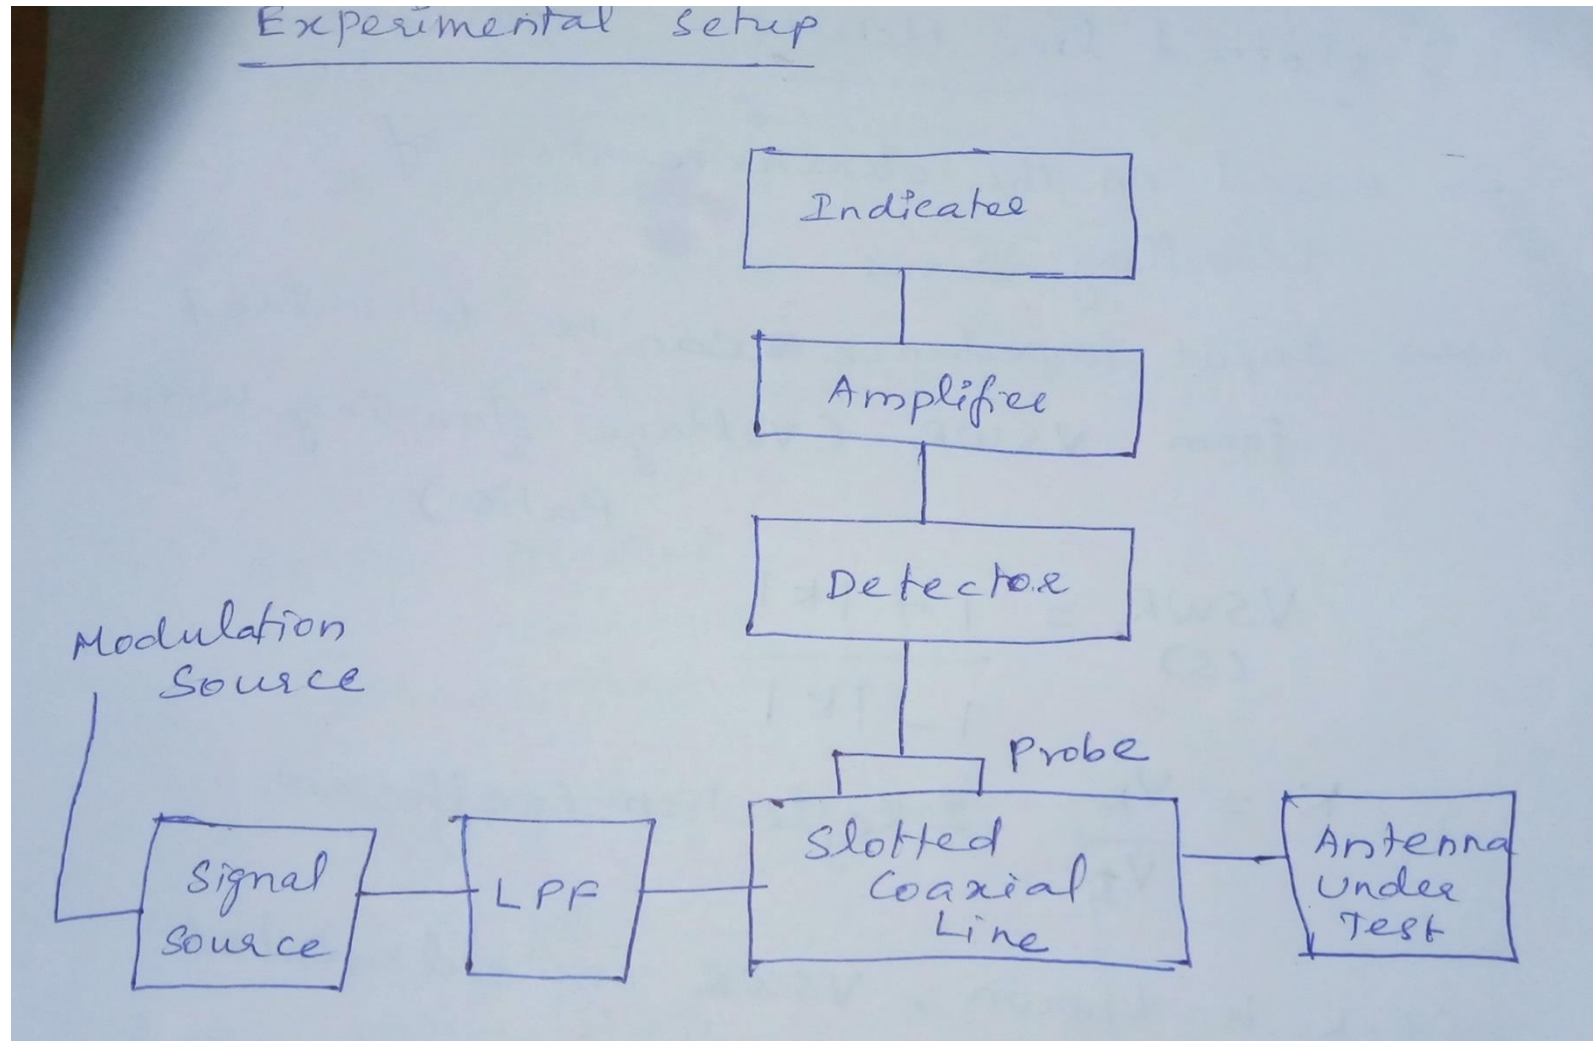 Experimental setup
Indicator
Amplifier
Detector
Modulation
Source
Probe
Signal
Source
LPF
Slotted
Coaxial
Line
Antenna
Under
Test